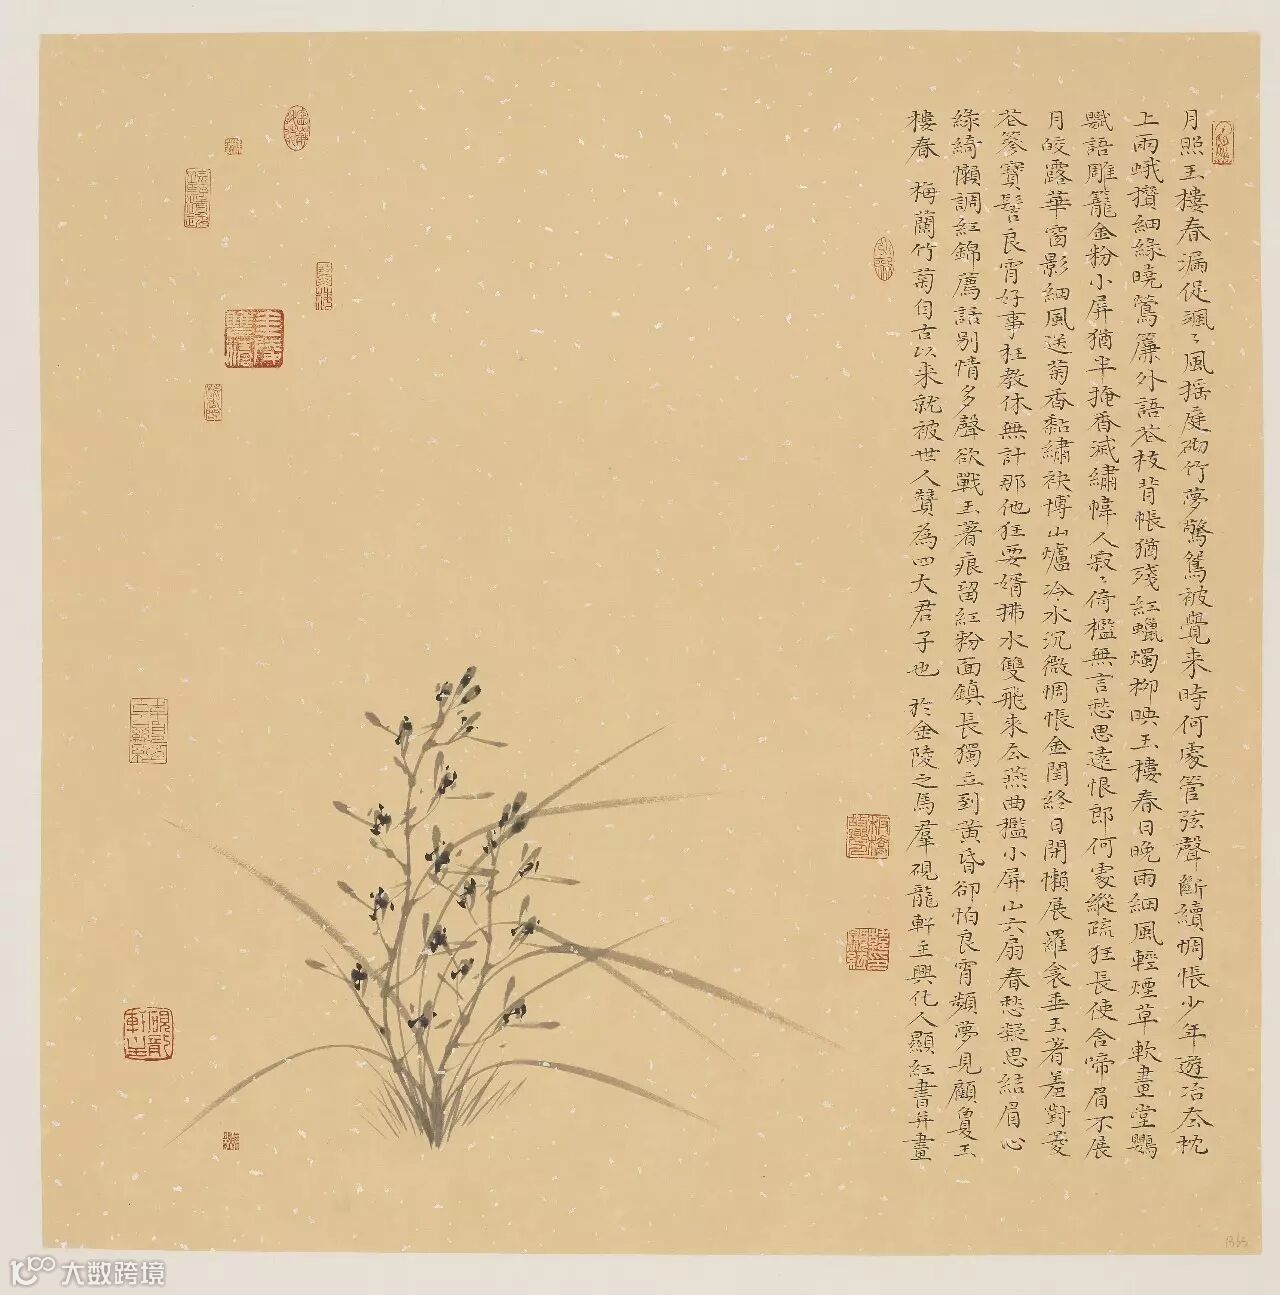 月照玉樓春漏促颯〻風搖庭砌竹夢驚鴛被覺来時何處管弦聲斷續惆悵少年遊冶去枕
上兩蛾攢細綠曉鶯簾外語花枝背帳猶殘紅蠟燭柳映玉樓春日晚雨細風輕煙草軟畫堂鸚
鵡語雕籠金粉小屏猶半掩香滅繡幃人寂〻倚檻無言愁思遠恨郎何處縱疏狂長使含啼眉不展
月皎露華窗影細風送菊香黏繡袂博山爐冷水沉微惆悵金閨終日閉懶展羅衾垂玉箸羞對菱
花篸寶髻良宵好事枉教休無計那他狂耍婿拂水雙飛来去燕曲檻小屏山六扇春愁凝思結眉心
綠綺懶調紅錦薦話別情多聲欲戰玉箸痕留紅粉面鎮長獨立到黃昏卻怕良宵頻夢見顧敻玉
樓春 梅蘭竹菊自古以来就被世人贊為四大君子也 於金陵之馬羣硯龍軒主興化人顯紅書并畫
硯龍軒主
1365
大数跨境